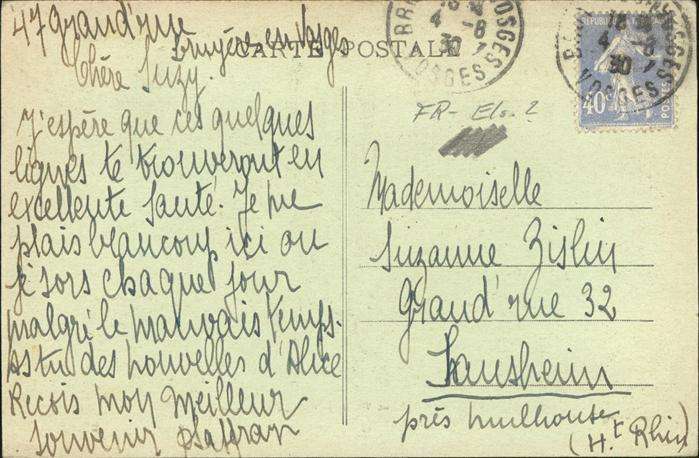 47 Grand'rue
Bruyère en Vosges
CARTE POSTALE
Chère Suzy
J'espère que ces quelques
lignes te trouveront en
excellente santé. Je me
plais beaucoup ici ou
je sors chaque jour
malgré le mauvais temps.
As tu des nouvelles d'Alice
Reçois mon meilleur
souvenir
FR- Els. ?
Mademoiselle
Suzanne Zislin
Grand'rue 32
Sausheim
près Mulhouse
(Ht Rhin)
4 - 8
30
VOSGES
RÉPUBLIQUE FRANÇAISE
40c
POSTES
4 - 8
30
VOSGES